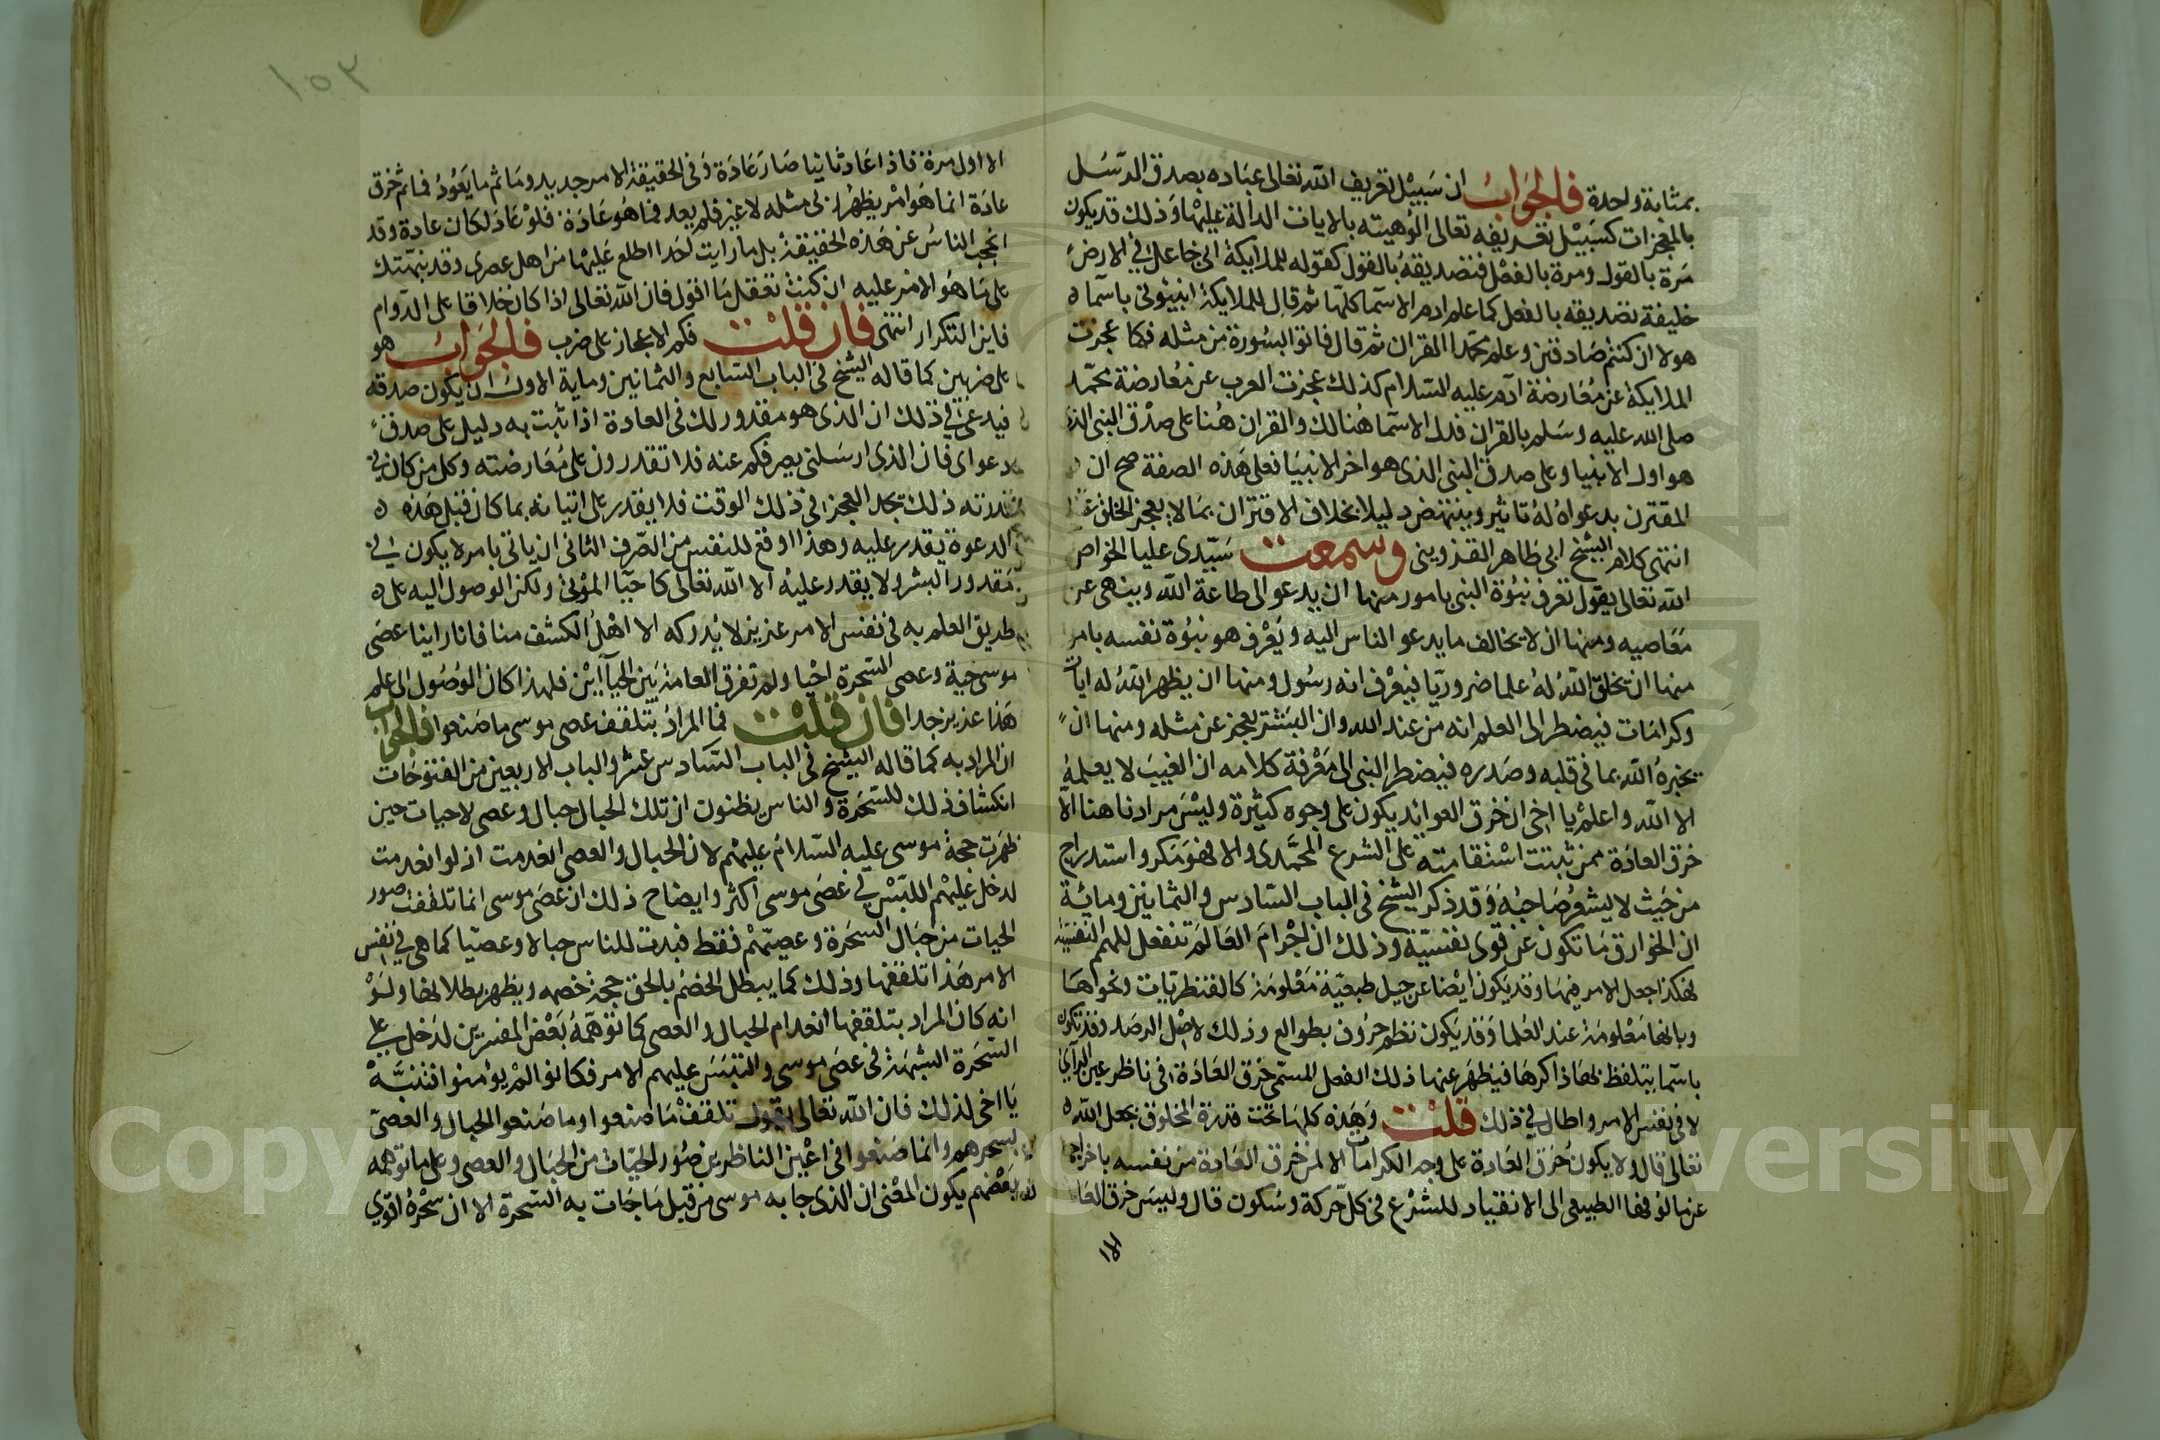 بمثابة واحدة فالجواب ان سبيل تعريف الله تعالى عباده بصدق الرسل
بالمعجزات كسبيل تعريفه تعالى الوهيته بالايات الدالة عليها وذلك قد يكون
مرة بالقول ومرة بالفعل فتصديقه بالقول كقوله للملايكة اني جاعل في الارض
خليفة تصديقه بالفعل كما علم ادم الاسما كلها ثم قال للملايكة انبيوني باسما
هولا ان كنتم صادقين وعلم محمدا القران ثم قال فاتوا بسورة من مثله فكما عجزت
الملايكة عن معارضة آدم عليه السلام كذلك عجزت العرب عن معارضة محمد
صلى الله عليه وسلم بالقران فدل الاسما هنالك والقران هنا على صدق النبي الذي
هو اول الانبيا وعلى صدق النبي الذي هو اخر الانبيا فعلى هذه الصفة صح ان
المقترن بدعواه له تاثير وينتهض دليلا بخلاف الاقتران بما لا يعجز الخلق عنه
انتهى كلام الشيخ ابي طاهر القزويني وسمعت سيدي عليا الخواص
الله تعالى يقول تعرف نبوة النبي بامور منها ان يدعو الى طاعة الله وينهى عن
معاصيه ومنها ان لا يخالف ما يدعو الناس اليه ويعرف هو نبوة نفسه بامر
منها ان يخلق الله له علما ضروريا فيعرف انه رسول ومنها ان يظهر الله له ايات
وكرامات فيضطر الى العلم انه من عند الله وان البشر يعجز عن مثله ومنها ان
يخبره الله بما في قلبه وصدره فيضطر النبي الى معرفة كلامه ان الغيب لا يعلمه
الا الله واعلم يا اخي ان خرق العوائد يكون على وجوه كثيرة وليس مرادنا هنا الا
خرق العادة ممن ثبتت استقامته على الشرع المحمدي والا فهو مكر واستدراج
من حيث لا يشعر صاحبه وقد ذكر الشيخ في الباب السادس والثمانين ومائة
ان الخوارق ما تكون عن قوى نفسية وذلك ان اجرام العالم تنفعل للهمم النفسية
هكذا جعل الامر فيها وقد يكون ايضا عن حيل طبعية معلومة كالقنطريات ونحوها
وبابها معلومة عند العلما وقد يكون نظم حروف بطوالع وذلك لاهل الرصد وقد تكون
باسما يتلفظ بها ذاكرها فيظهر عنها ذلك الفعل المسمى خرق العادة في ناظر عين الرآي
لا في نفس الامر واطال في ذلك قلت وهذه كلها تحت قدرة المخلوق بجعل الله
تعالى قال ولا يكون خرق العادة على وجه الكرامات الا لمن خرق العادة من نفسه باخراجها
عن مالوفها الطبيعي الى الانقياد للشرع في كل حركة وسكون قال وليس خرق العاد
الا
١٥٢
الا اول مرة فاذا عاد ثانيا صار عادة وفي الحقيقة الامر جديد وما ثم ما يعود فما ثم خرق
عادة انما هو امر يظهر بي مثله لا عينه فلم يعد فما هو عادة فلو عاد لكان عادة وقد
انحجب الناس عن هذه الحقيقة بل ما رايت احدا اطلع عليها من اهل عصري وقد نبهتك
على ما هو الامر عليه ان كنت تعقل ما اقول فان الله تعالى اذا كان خلاقا على الدوام
فاين التكرار انتهى فان قلت فكم الاعجاز على ضرب فالجواب هو
على ضربين كما قاله الشيخ في الباب السابع والثمانين وماية الاول ان يكون صدقه
فيدعي في ذلك ان الذي هو مقدور لك في العادة اذا ثبت به دليل على صدق
دعواي فان الذي ارسلني يصرفكم عنه فلا تقدرون على معارضته وكل من كان في
قدرته ذلك تجد العجز في ذلك الوقت فلا يقدر على اتيانه بما كان قبل هذه
الدعوة يقدر عليه وهذا اوقع للنفس من الصرف الثاني ان ياتي بامر لا يكون في
مقدور البشر ولا يقدر عليه الا الله تعالى كاحيا الموتى ولكن الوصول اليه على
طريق العلم به في نفس الامر عزيز لا يدركه الا اهل الكشف منا فانا راينا عصى
موسى حية وعصى السحرة احيا ولم تفرق العامة بين الحيآتين فلهذا كان الوصول الى علم
هذا عزيز جدا فان قلت فما المراد بتلقف عصى موسى ما صنعوا فالجواب
ان المراد به كما قاله الشيخ في الباب السادس عشر والباب الاربعين من الفتوحات
انكشاف ذلك للسحرة والناس يظنون ان تلك الحبال حبال وعصي لا حيات حين
ظهرت حجة موسى عليه السلام عليهم لا ان الحبال والعصي انعدمت اذ لو انعدمت
لدخل عليهم اللبس في عصى موسى اكثر وايضاح ذلك ان عصى موسى انما تلقفت صور
الحيات من حبال السحرة وعصيهم فقط فبدت للناس حبالا وعصيا كما هي في نفس
الامر هذا تلقفها وذلك كما يبطل الخصم بالحق حجة خصمه ويظهر بطلانها ولو
انه كان المراد بتلقفها انعدام الحبال والعصي كما توهمه بعض المفسرين لدخل على
السحرة الشبهة في عصى موسى والتبس عليهم الامر فكانوا لم يؤمنوا فتنبه
يا اخي لذلك فان الله تعالى يقول تلقف ما صنعوا وما صنعوا الحبال والعصي
بسحرهم وانما صنعوا في اعين الناظرين صور الحيات من الحبال والعصي وعلى ما توهمه
بعضهم يكون المعنى ان الذي جا به موسى من قبيل ما جات به السحرة الا ان سحره اقوي
Copyright © King Saud University